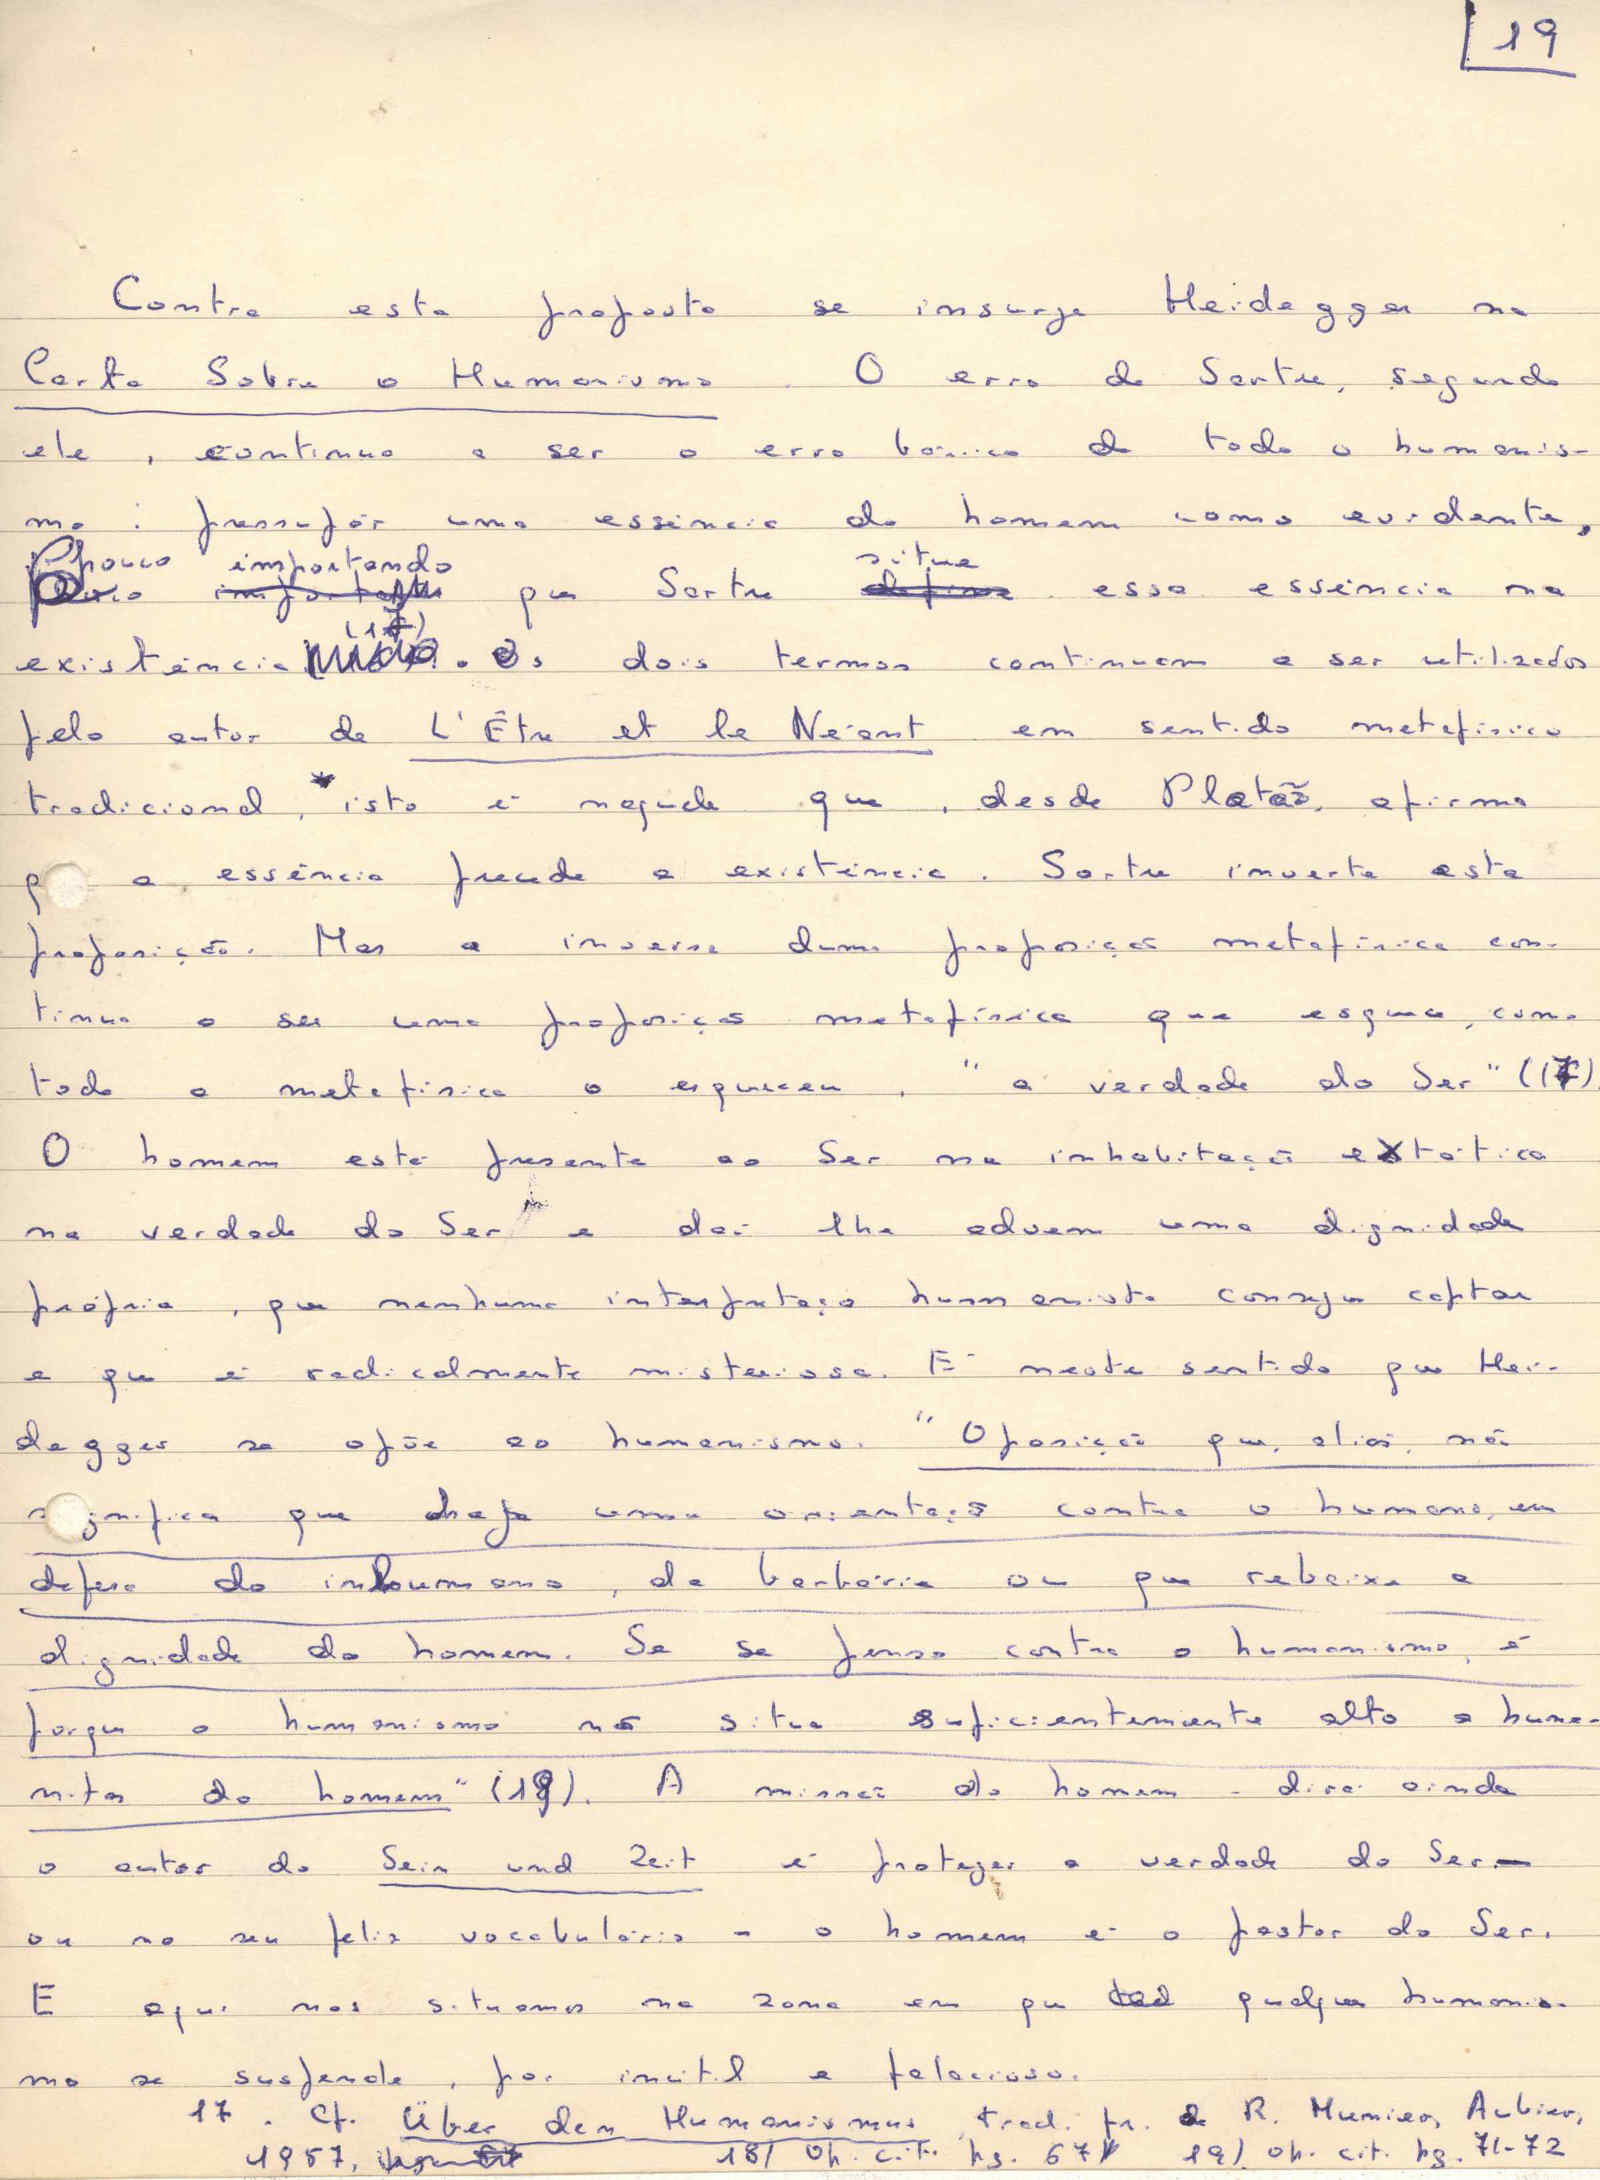 19
Contra esta proposta se insurge Heidegger na
Carta Sobre o Humanismo. O erro de Sartre, segundo
ele, continua a ser o erro básico de todo o humanis-
mo: pressupôr uma essência do homem como evidente,
pouco importando que Sartre situe essa essência na
existência (17). Os dois termos continuam a ser utilizados
pelo autor de L'Être et le Néant em sentido metafísico
tradicional, isto é naquele que, desde Platão, afirma
q a essência precede a existência. Sartre inverte esta
proposição. Mas a inversa duma proposição metafísica con-
tinua a ser uma proposição metafísica que esquece, como
toda a metafísica o esqueceu, "a verdade do Ser" (17)
O homem está presente ao Ser na inhabitação extática
na verdade do Ser e daí lhe advem uma dignidade
própria, que nenhuma interpretação humanista consegue captar
e que é radicalmente misteriosa. É neste sentido que Hei-
degger se opõe ao humanismo. "Oposição que, aliás, não
significa que haja uma orientação contra o humano, em
defesa do inhumano, da barbárie ou que rebaixe a
dignidade do homem. Se se pensa contra o humanismo, é
porque o humanismo não situa suficientemente alto a huma-
nitas do homem" (19). A missão do homem - dirá ainda
o autor do Sein und Zeit é proteger a verdade do Ser -
ou no seu feliz vocabulário - o homem é o pastor do Ser.
E aqui nos situamos na zona em que qualquer humanis-
mo se suspende, por inútil e falacioso.
17. Cf. Über den Humanismus, trad. fr. de R. Munier, Aubier,
1957, 18) Op. cit. pg. 67 19) Op. cit. pg. 71-72